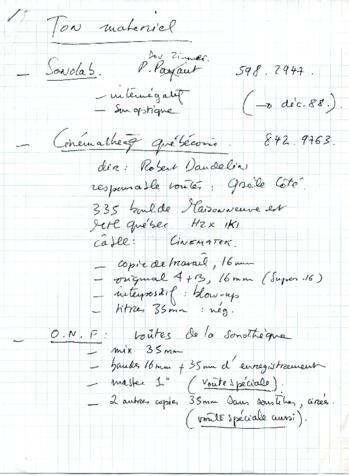 Ton matériel
Don Zimmer.
— Sonolab. P. Payfaut 598.2947.
— internégatif
— son optique (→ déc. 88.)
— Cinémathèq québécoise. 842.9763.
dir: Robert Daudelin
responsable voûtes: Gisèle Côté.
335 boul de Maisonneuve est
Mtl québec H2X 1K1
câble: CINEMATEK.
— copie de travail, 16mm
— original A+B, 16mm (Super.16)
— interpositif: blow-up
— titres 35mm: nég.
— O.N.F: voûtes de la sonothèque
— mix 35mm
— bandes 16mm + 35mm d'enregistrement
— master 1" (voûte spéciale).
— 2 autres copies 35mm sous-titrées, cirées.
(voûte spéciale aussi).